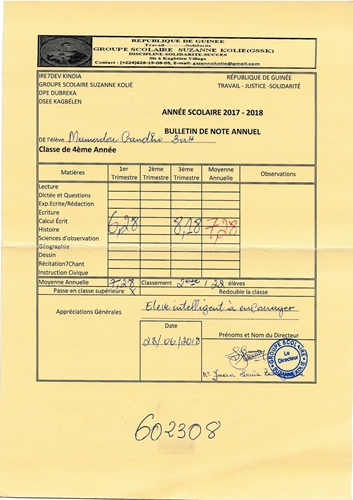 REPUBLIQUE DE GUINEE
Travail-Justice-Solidarité
GROUPE SCOLAIRE SUZANNE KOLIE(GSSK)
DISCIPLINE-SOLIDARITE-SUCCES
Sis à Kagbélen Village
IRE7DEV KINDIA
GROUPE SCOLAIRE SUZANNE KOLIÉ
DPE DUBREKA
DSEE KAGBÉLEN
RÉPUBLIQUE DE GUINÉE
TRAVAIL - JUSTICE -SOLIDARITÉ
ANNÉE SCOLAIRE 2017 - 2018
BULLETIN DE NOTE ANNUEL
DE l'élève Mamadou Gandho Bah
Classe de 4ème Année
Matières 1er Trimestre 2ème Trimestre 3ème Trimestre Moyenne Annuelle Observations
Lecture
Dictée et Questions
Exp.Ecrite/Rédaction
Ecriture
Calcul Écrit 6,28 8,18 7,28
Histoire
Sciences d'observation
Géographie
Dessin
Récitation7Chant
Instruction Civique
Moyenne Annuelle 7,28 Classement 2ème / 22 élèves
Passe en classe supérieure X Redouble la classe
Appréciations Générales Elève intelligent à encourager
Date
28/06/2018
Prénoms et Nom du Directeur
GROUPE SCOLAIRE
Le Directeur
SUZANNE KOLIE
602308